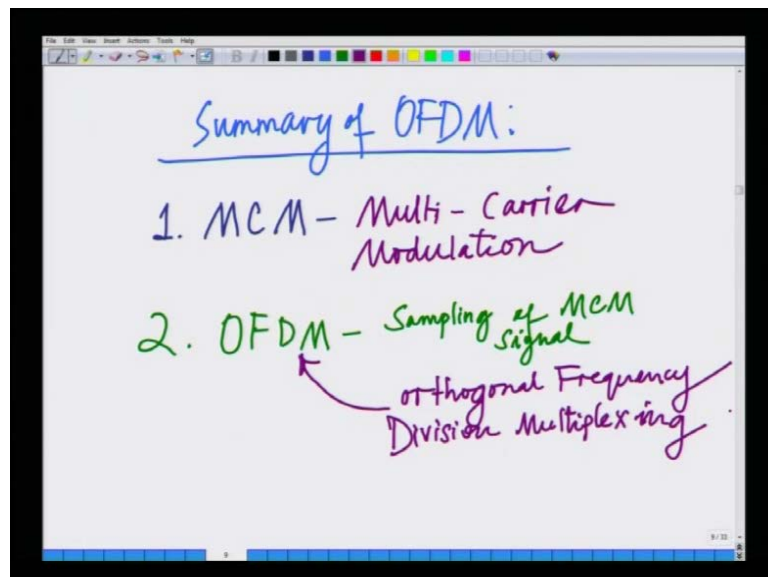 File Edit View Insert Actions Tools Help
Summary of OFDM:
1. MCM - Multi-Carrier
Modulation
2. OFDM - Sampling of MCM
Signal
orthogonal Frequency
Division Multiplexing
9/33
9